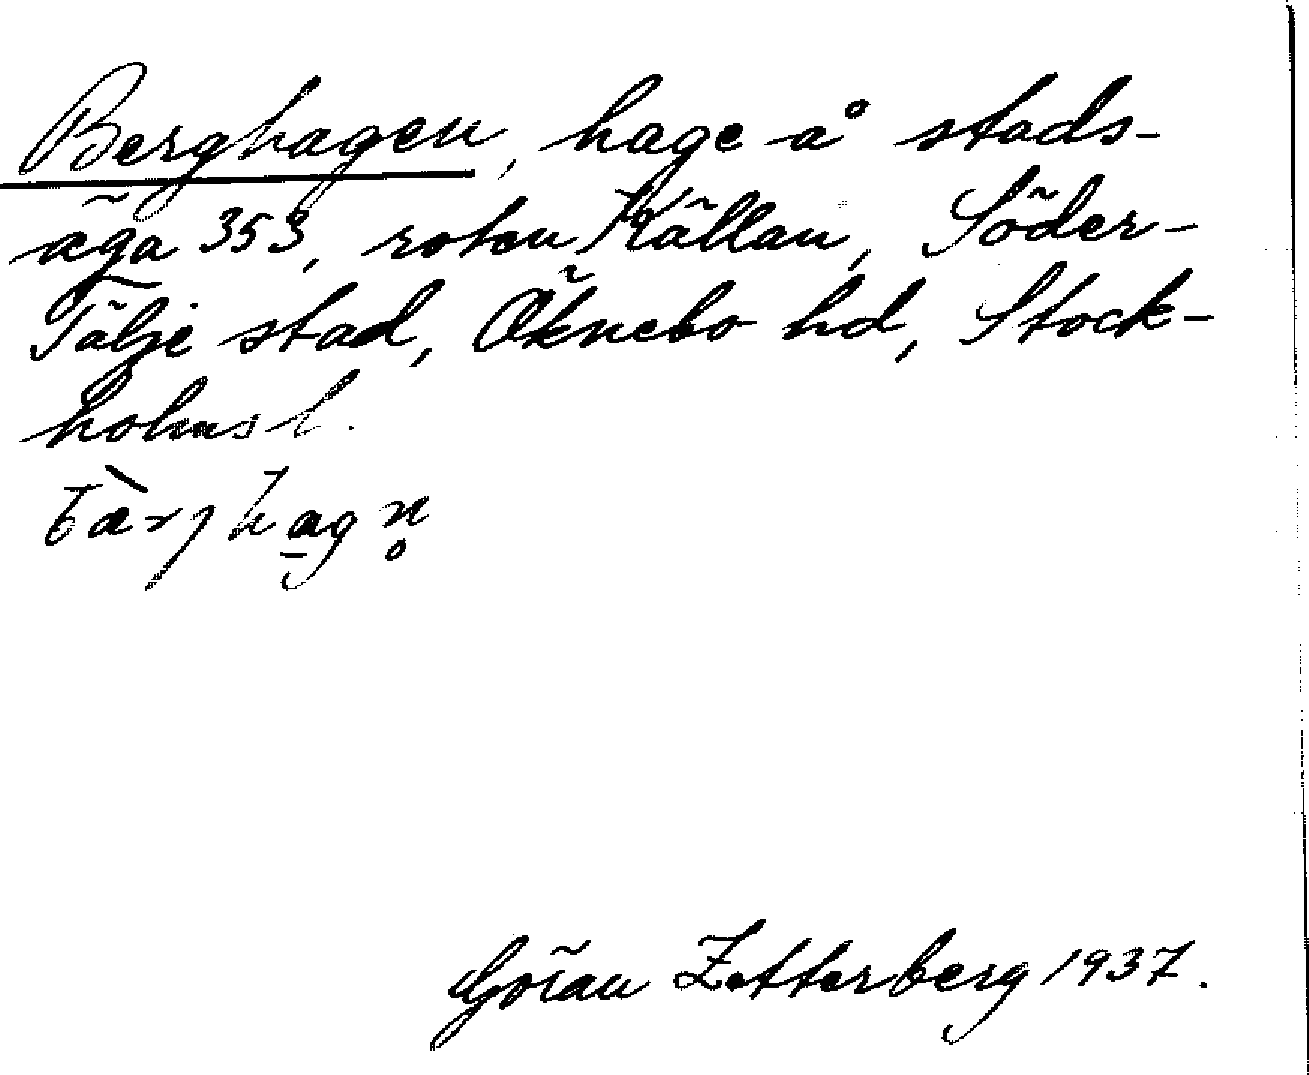 Berghagen, hage å stads-
äga 353, roten Källan, Söder-
Tälje stad, Öknebo hd, Stock-
holms l.
bà̀rjhag̠n̥
Göran Zetterberg 1937.